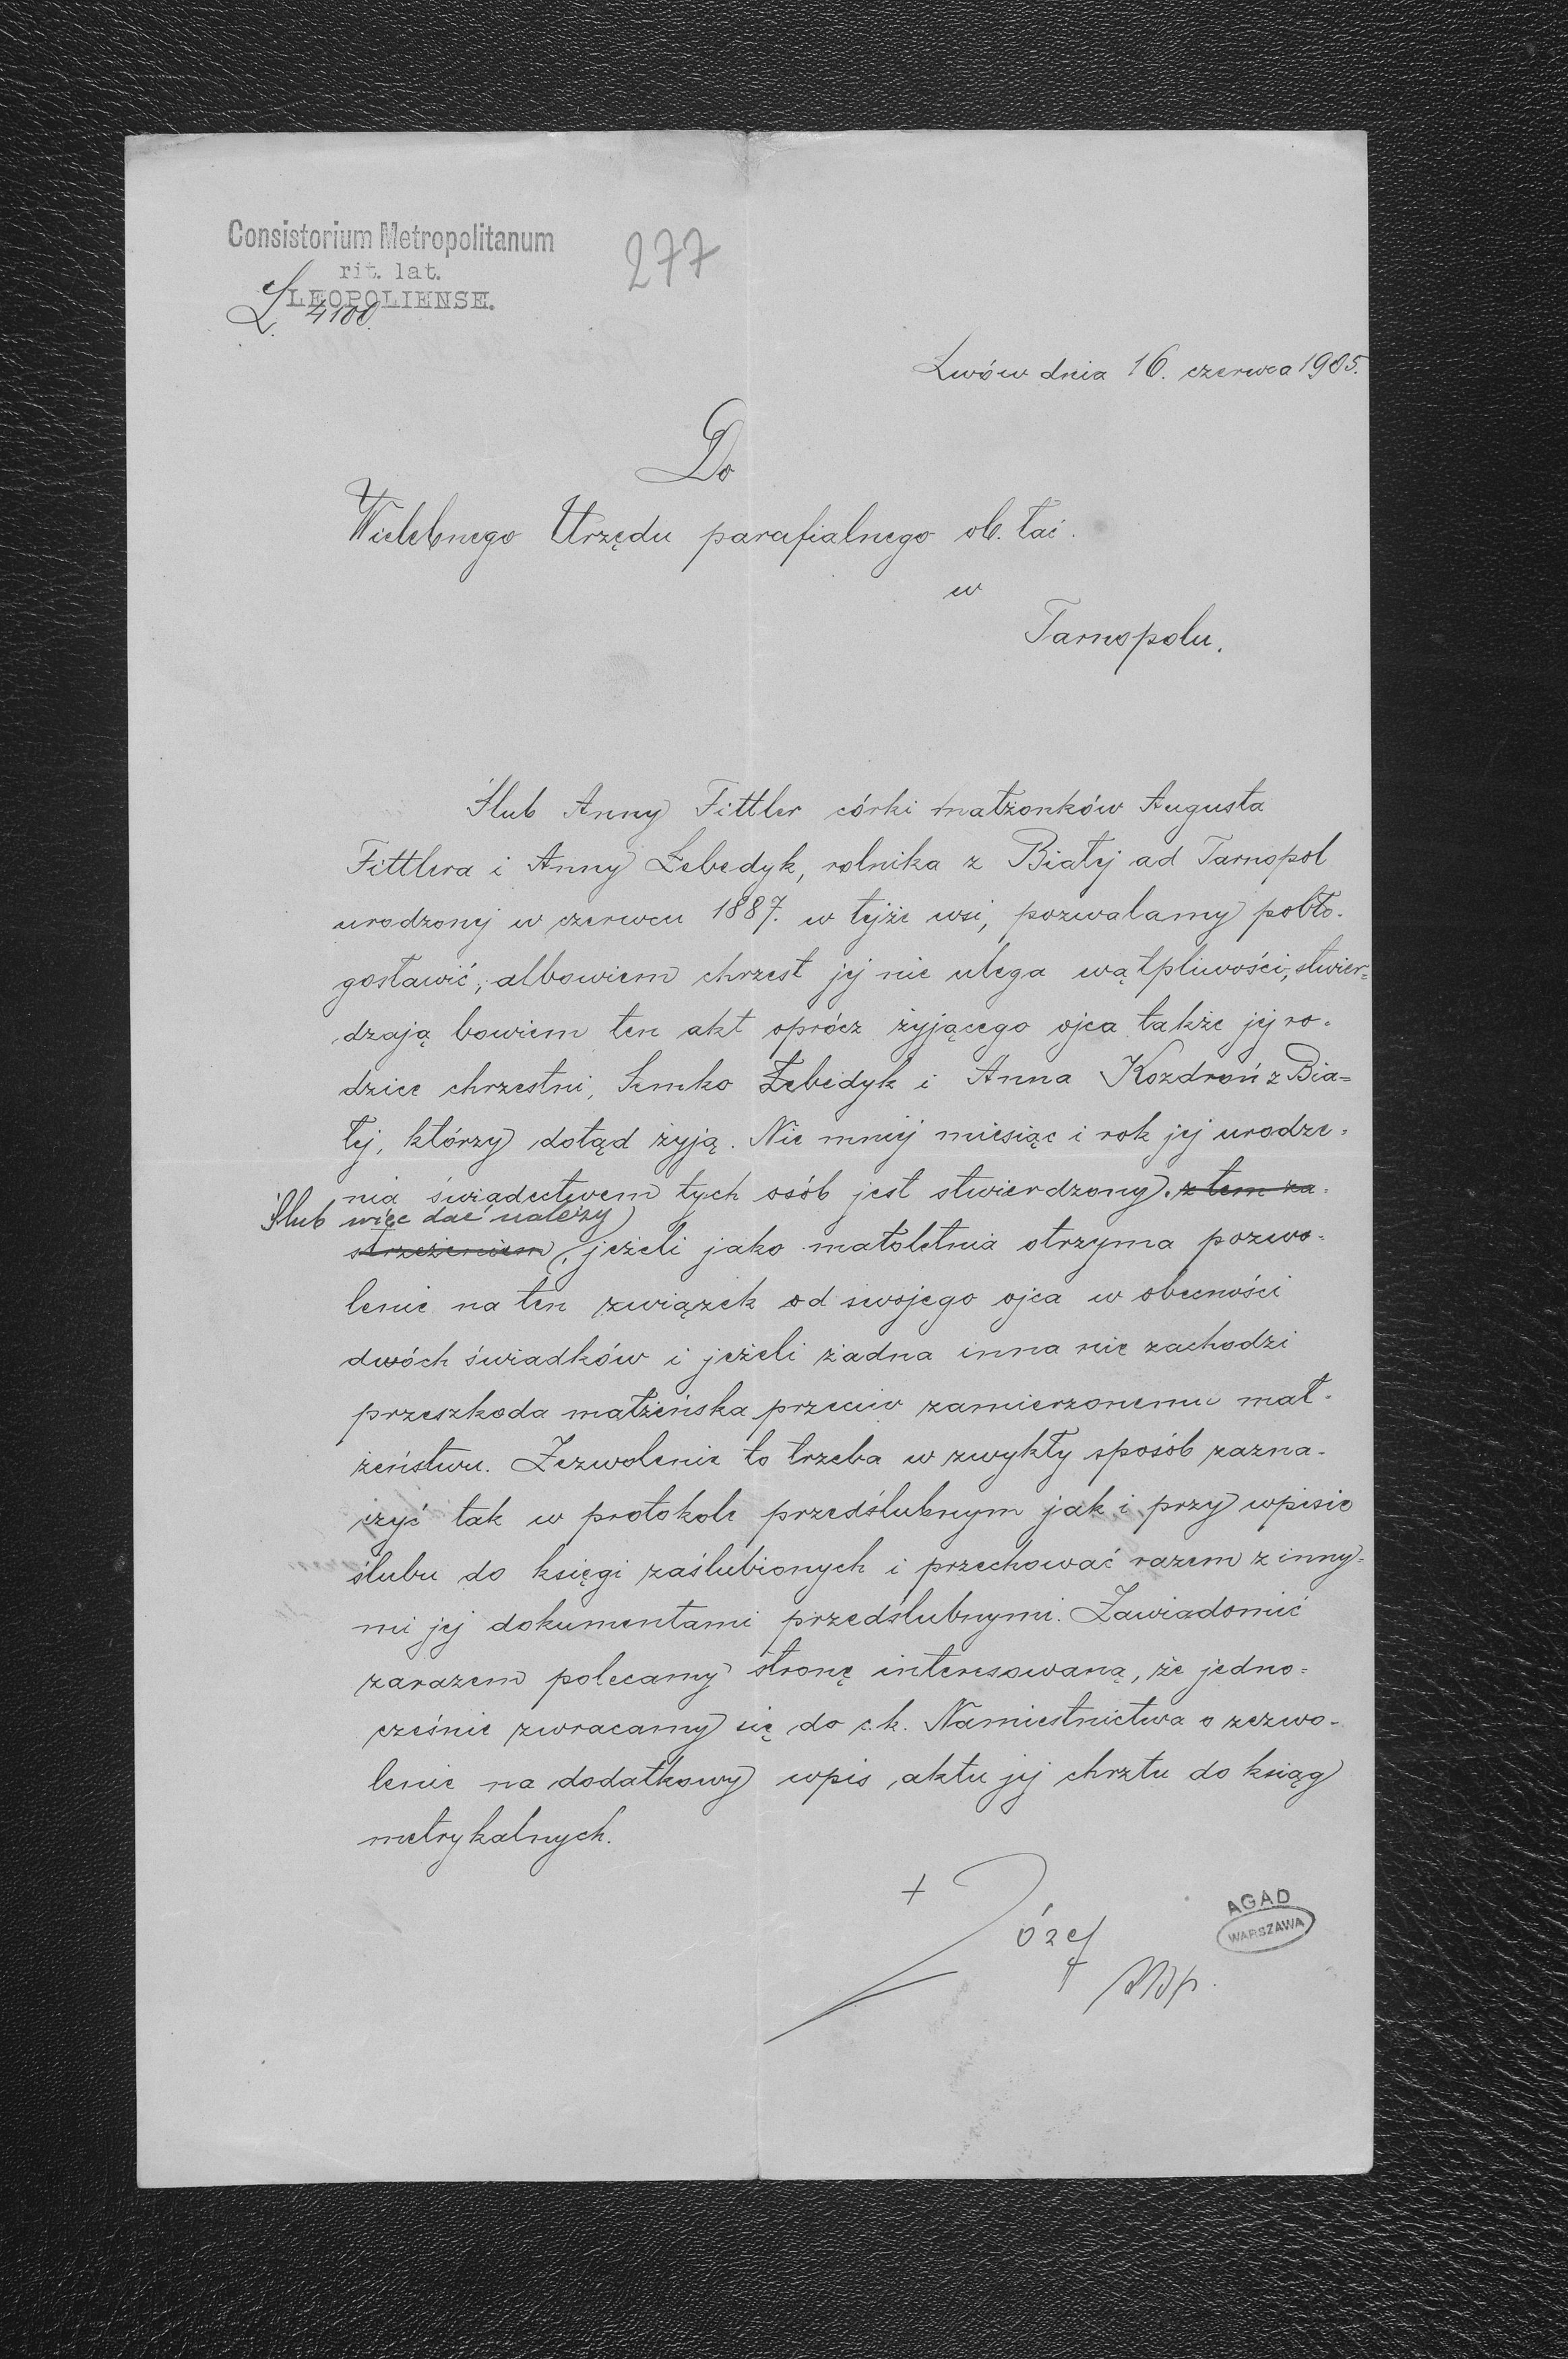 Consistorium Metropolitanum
rit. lat.
LEOPOLIENSE.
L. 4100.
277
Lwów dnia 16. czerwca 1905.
Do
Wielebnego Urzędu parafialnego ob. łać.
w
Tarnopolu.
Ślub Anny Fittler córki małżonków Augusta
Fittlera i Anny Łebedyk, rolnika z Białej ad Tarnopol
urodzonej w czerwcu 1887. w tejże wsi, pozwalamy pobło-
gosławić, albowiem chrzest jej nie ulega wątpliwości, stwier=
dzają bowiem ten akt oprócz żyjącego ojca także jej ro-
dzice chrzestni, Semko Łebedyk i Anna Kozdroń z Bia=
łej, którzy dotąd żyją. Nie mniej miesiąc i rok jej urodze-
nia świadectwem tych osób jest stwierdzony. z tem za-
Ślub więc dać należy
strzeżeniem, jeżeli jako małoletnia otrzyma pozwo-
lenie na ten związek od swojego ojca w obecności
dwóch świadków i jeżeli żadna inna nie zachodzi
przeszkoda małżeńska przeciw zamierzonemu mał-
żeństwu. Zezwolenie to trzeba w zwykły sposób zazna-
czyć tak w protokole przedślubnym jak i przy wpisie
ślubu do księgi zaślubionych i przechować razem z inny=
mi jej dokumentami przedślubnymi. Zawiadomić
zarazem polecamy stronę interesowaną, że jedno=
cześnie zwracamy się do c.k. Namiestnictwa o zezwo-
lenie na dodatkowy wpis aktu jej chrztu do ksiąg
metrykalnych.
+ Józef
AGAD
WARSZAWA